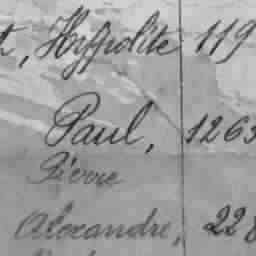 Hyppolite 119
Paul, 1263
Pierre
Alexandre, 228